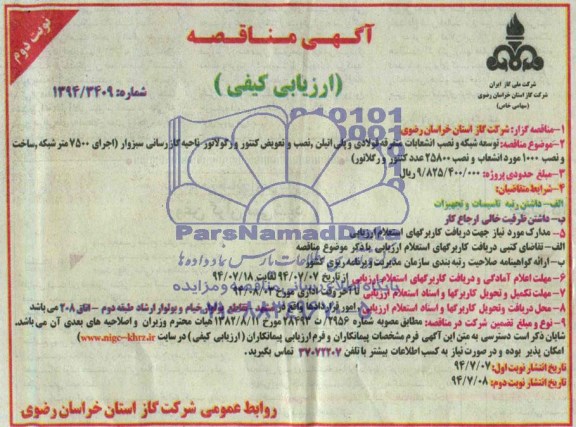 نوبت دوم
آگهی مناقصه
شرکت ملی گاز ایران
شرکت گاز استان خراسان رضوی
(سهامی خاص)
(ارزیابی کیفی)
شماره: ۱۳۹۴/۳۴۰۹
۱-مناقصه گزار: شرکت گاز استان خراسان رضوی
۲-موضوع مناقصه: توسعه شبکه و نصب انشعابات متفرقه فولادی و پلی اتیلن ،نصب و تعویض کنتور و رگولاتور ناحیه گازرسانی سبزوار (اجرای ۷۵۰۰ متر شبکه ،ساخت
و نصب ۱۰۰۰ مورد انشعاب و نصب ۲۵۸۰۰ عدد کنتور و رگلاتور)
۳-مبلغ حدودی پروژه: ۹/۸۲۵/۴۰۰/۰۰۰ ریال
۴-شرایط متقاضیان:
الف-داشتن رتبه تاسیسات و تجهیزات
ب- داشتن ظرفیت خالی ارجاع کار
۵- مدارک مورد نیاز جهت دریافت کاربرگهای استعلام ارزیابی
الف- تقاضای کتبی دریافت کاربرگهای استعلام ارزیابی با ذکر موضوع مناقصه
ب- ارائه گواهینامه صلاحیت رتبه بندی سازمان مدیریت و برنامه ریزی کشور
۶-مهلت اعلام آمادگی و دریافت کاربرگهای استعلام ارزیابی از تاریخ ۹۴/۰۷/۰۷ لغایت ۹۴/۰۷/۱۸
۷-مهلت تکمیل و تحویل کاربرگها و اسناد استعلام ارزیابی تا آخر وقت اداری مورخ
۸-محل دریافت وتحویل کاربرگها و اسناد استعلام ارزیابی امور قراردادها واقع در خیام و بولوار ارشاد طبقه دوم - اتاق ۲۰۸ می باشد
۹- نوع و مبلغ تضمین شرکت در مناقصه: مطابق مصوبه شماره ۲۹۵۶/ت ۲۸۴۹۳ مورخ ۱۳۸۲/۸/۱۱ هیات محترم وزیران و اصلاحیه های بعدی آن می باشد.
شایان ذکر است دسترسی به متن این آگهی فرم مشخصات پیمانکاران و فرم ارزیابی پیمانکاران (ارزیابی کیفی) در سایت www.nigc-khrz.ir
امکان پذیر بوده و در صورت نیاز به کسب اطلاعات بیشتر با تلفن ۳۷۰۷۲۲۰۷ تماس بگیرید.
تاریخ انتشار نوبت اول: ۹۴/۷/۰۷
تاریخ انتشار نوبت دوم: ۹۴/۷/۰۸
روابط عمومی شرکت گاز استان خراسان رضوی
ParsNamadData